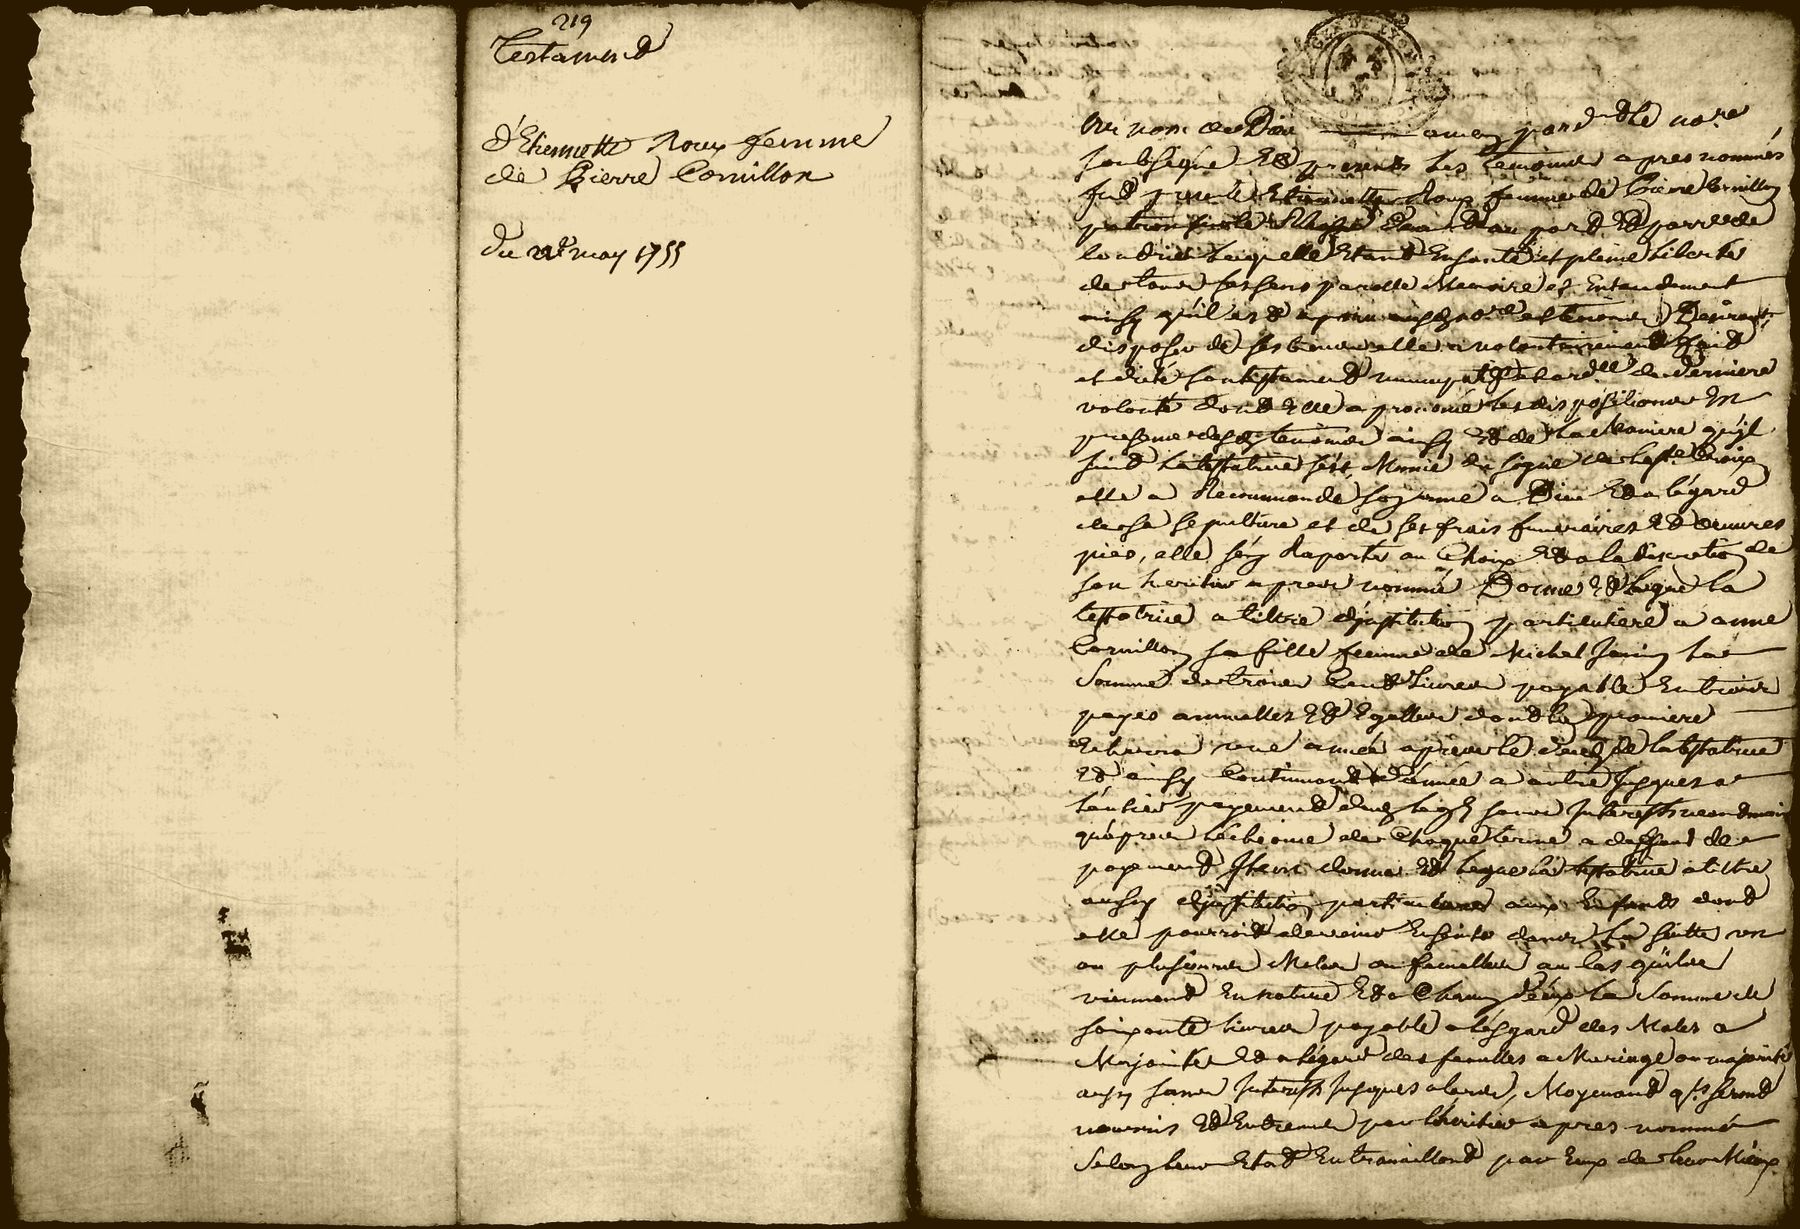 219
Testament
d'Etiennette Roux femme
de Pierre Cornillon
du may 1755
GEN. DE LYON
Au nom de Dieu amen par dt le nore
soubsigné Et presents les temoins apres nommés
fut pnte Etiennette Roux femme de Pierre Cornillon
patron sur le Rhosne au port Et parre de
Condrieu laquelle Etant En santé et pleine liberté
de tous ses sens parolle Memoire et Entendement
ainsy qu'il est aparu auxd nore et temoins Desirant
disposer de ses biens elle a volontairement fait
et dicté son testament nuncupatif et ordce de derniere
volonté dont Elle a prononcé les dispositions En
presence desd temoins ainsy Et de la Maniere qu'il
suit la testatrice s'est Munie du signe de la ste Croix
elle a Recommandé son ame a Dieu Et a l'égard
de sa sepulture et de ses frais funeraires Et œuvres
pies, elle s'en Raporte au Choix Et a la discretion de
son heritier apres nommé Donne Et legue la
testatrice a tiltre d'institution particuliere a anne
Cornillon sa fille femme de Michel Janin la
Somme de trois Cent Livres payable En trois
payes annuelles Et Egalles dont la premiere
Echerra une année apres le deces de la testatrice
Et ainsy Continuant d'année a autre Jusques a
l'entier payement dud legs sans Interests neandmoins
qu'apres l'écheance de Chaque terme a deffaut de
payement Item donne Et legue la testatrice a titre
aussy d'institution particuliere aux Enfants dont
elle pourroit devenir Enceinte dans la suitte un
ou plusieurs Males ou femelles au cas qu'ils
viennent En nature Et a Chacun d'eux la Somme de
soixante livres payable a l'égard des Males a
Majorité Et a l'égard des femelles a Mariage ou majorité
aussy sans Interests Jusques alors, Moyenant qls seront
nourris Et Entretenus par l'heritier apres nommé
Selon leur Etat En travaillant par Eux de leur Mieux